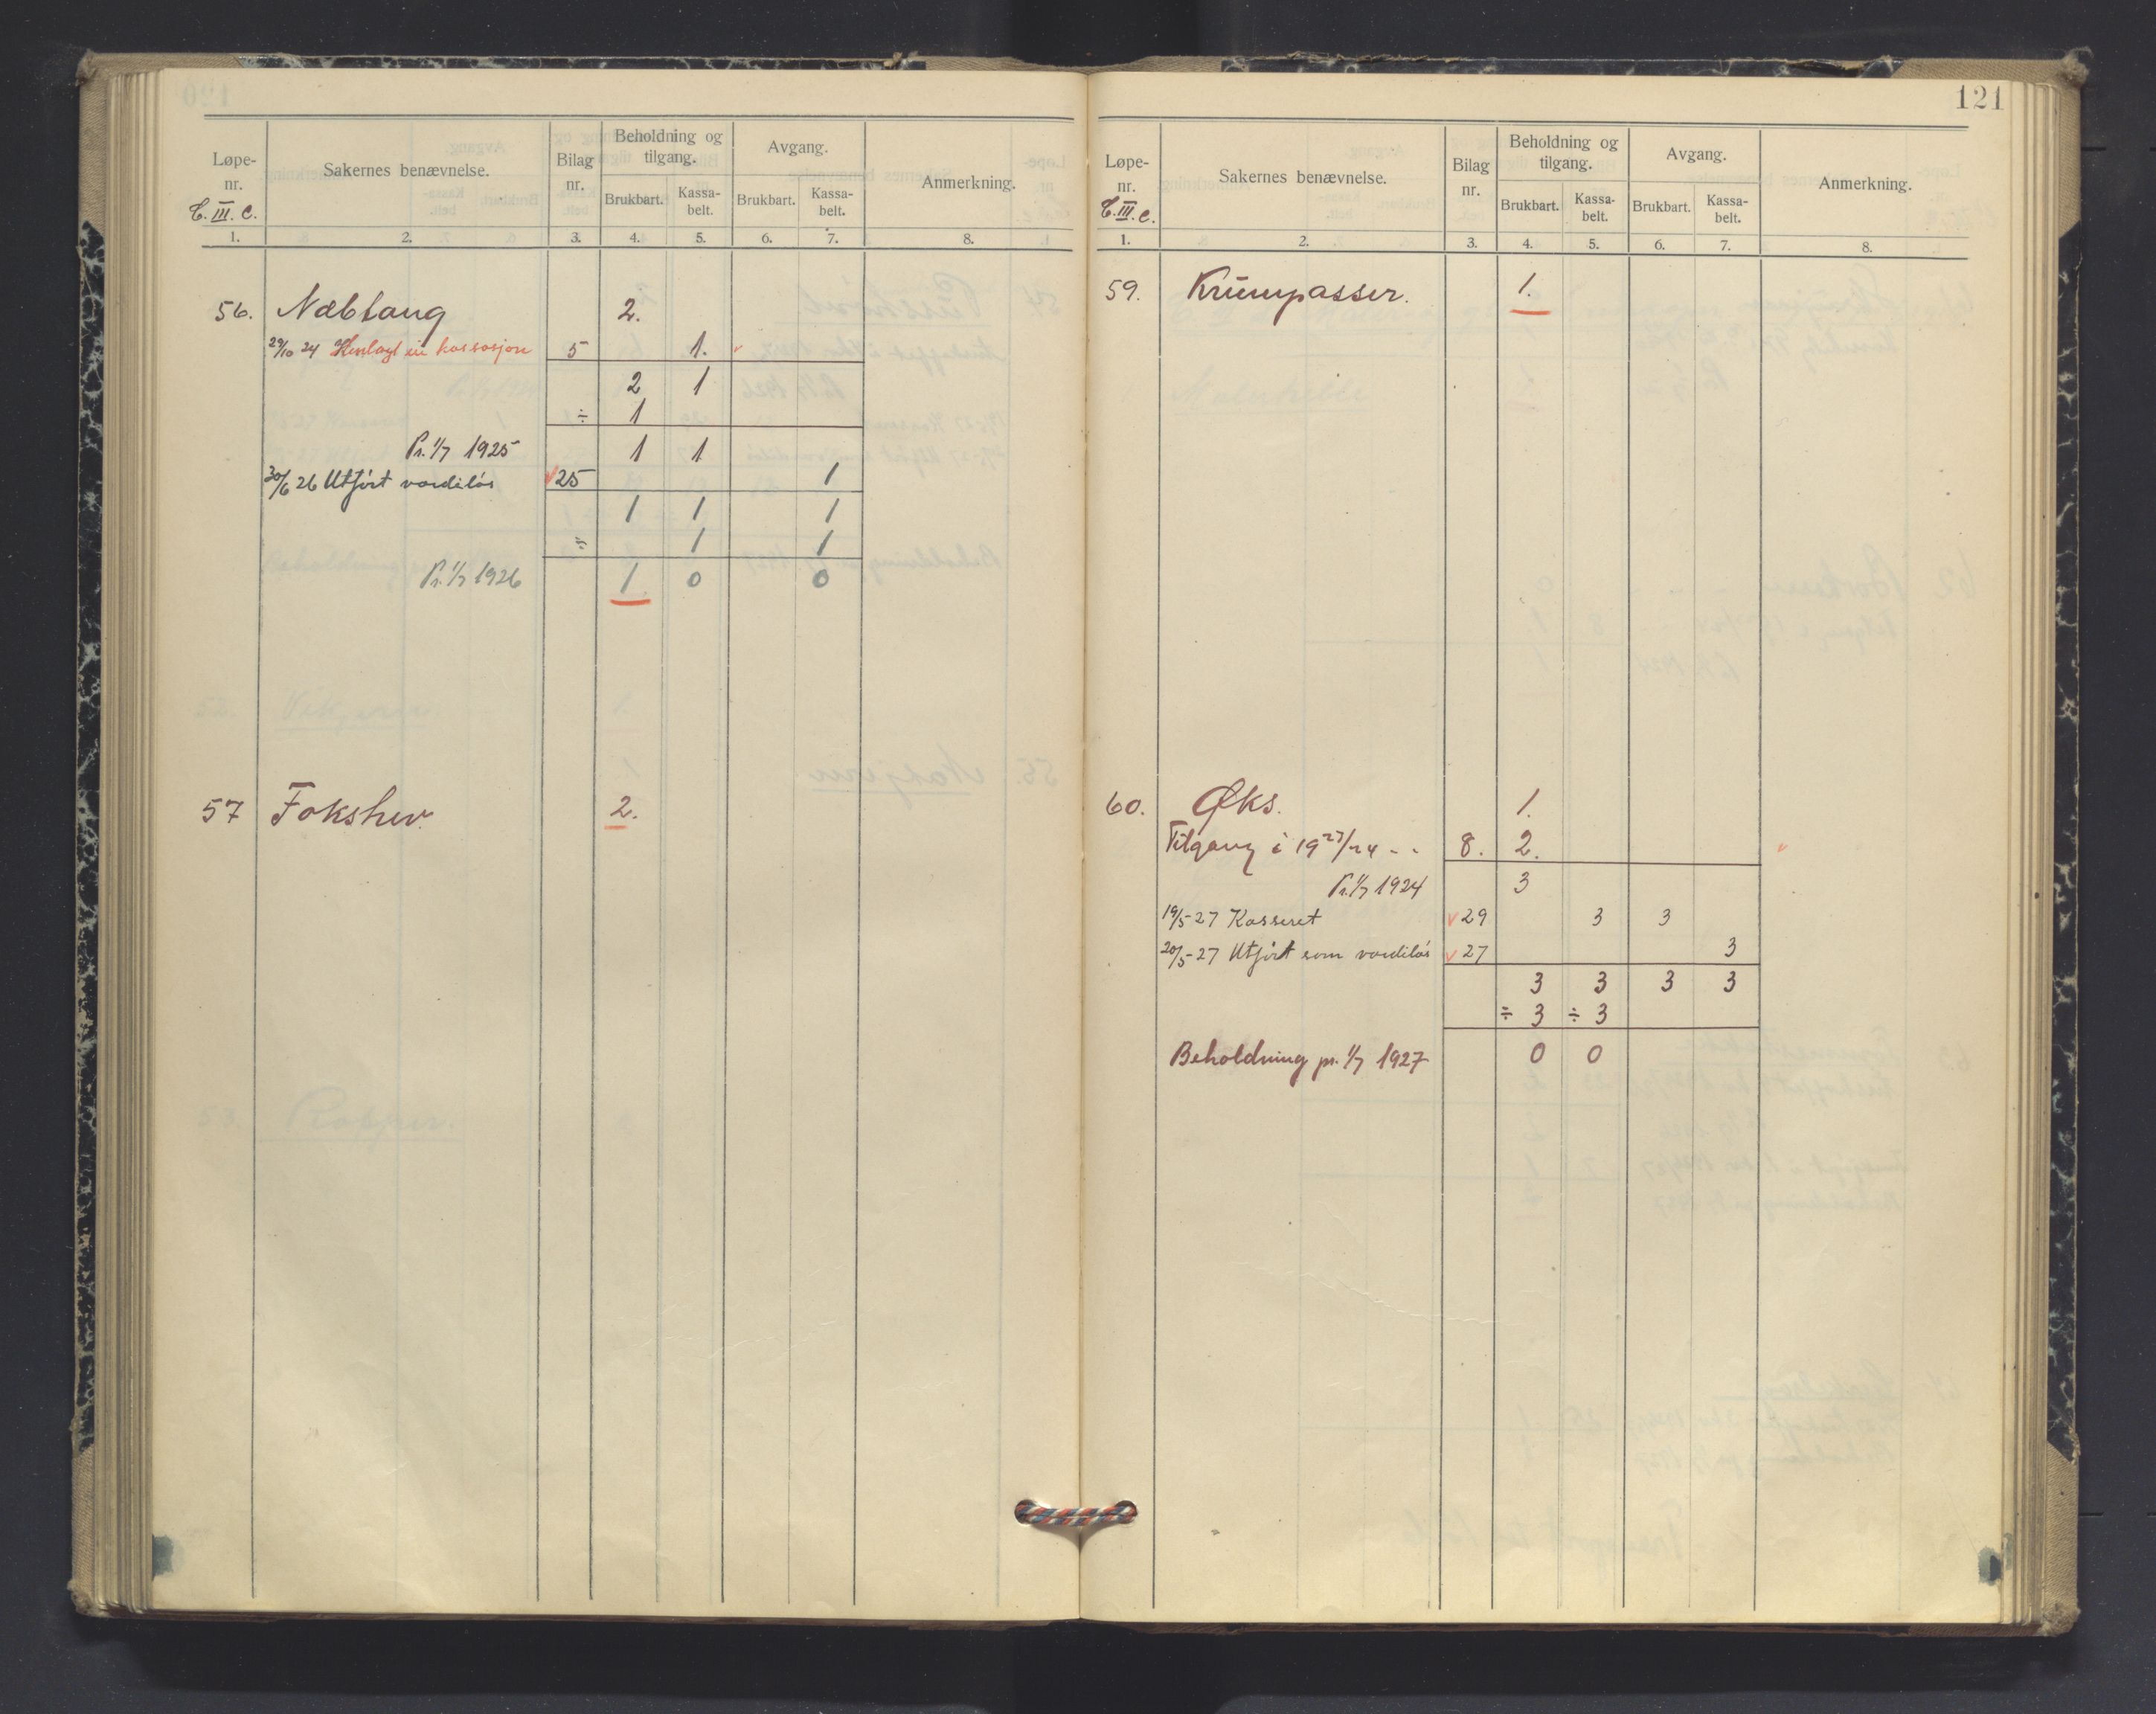 Løpe-nr. | Sakernes benævnelse. | Bilag nr. | Beholdning og tilgang. | Avgang. | Anmerkning.
Brukbart. | Kassa-belt. | Brukbart. | Kassa-belt.
C. III. C.
1. | 2. | 3. | 4. | 5. | 6. | 7. | 8.
56. Nebtang 2.
29/10 24 Henlagt kassasjon 5 1.
2 1
÷ 1
Pr. 1/7 1925 1 1
30/6 26 Utført værdiløs 25 1
1 1 1
÷ 1 1
Pr. 1/7 1926 1 0 0
57 Fokshev. 2.
121
Løpe-nr. | Sakernes benævnelse. | Bilag nr. | Beholdning og tilgang. | Avgang. | Anmerkning.
Brukbart. | Kassa-belt. | Brukbart. | Kassa-belt.
C. III. C.
1. | 2. | 3. | 4. | 5. | 6. | 7. | 8.
59. Krumpasser. 1.
60. Øks. 1.
Tilgang i 1923/24 - - 8. 2.
Pr. 1/7 1924 3
19/5-27 Kasseret 29 3 3
20/5-27 Utført som værdiløs 27 3
3 3 3 3
÷ 3 ÷ 3
Beholdning pr. 1/7 1927 0 0